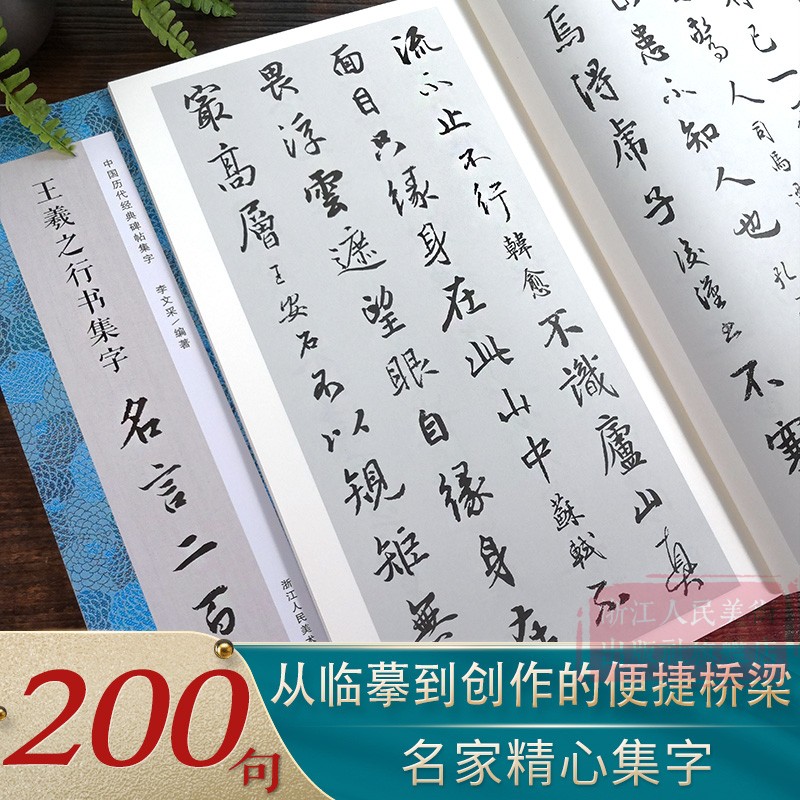 焉得虎子後漢書不
患不知人也孔
驚人司馬
有已一
流不止不行韓愈不識廬山真
面目只緣身在此山中蘇軾不
畏浮雲遮望眼自緣身在
最高層王安石不以規矩無
中国历代经典碑帖集字
李文采/编著
王羲之行书集字
名言二百
浙江人民美术
浙江人民美术
200句
从临摹到创作的便捷桥梁
名家精心集字